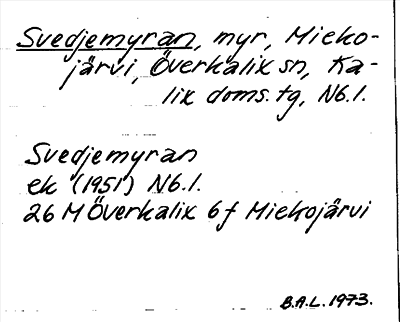 Svedjemyran, myr, Mieko-
järvi, Överkalix sn, Ka-
lix doms.tg, Nb.l.
Svedjemyran
ek (1951) Nb.l.
26 M Överkalix 6 f Miekojärvi
B.A.L. 1973.